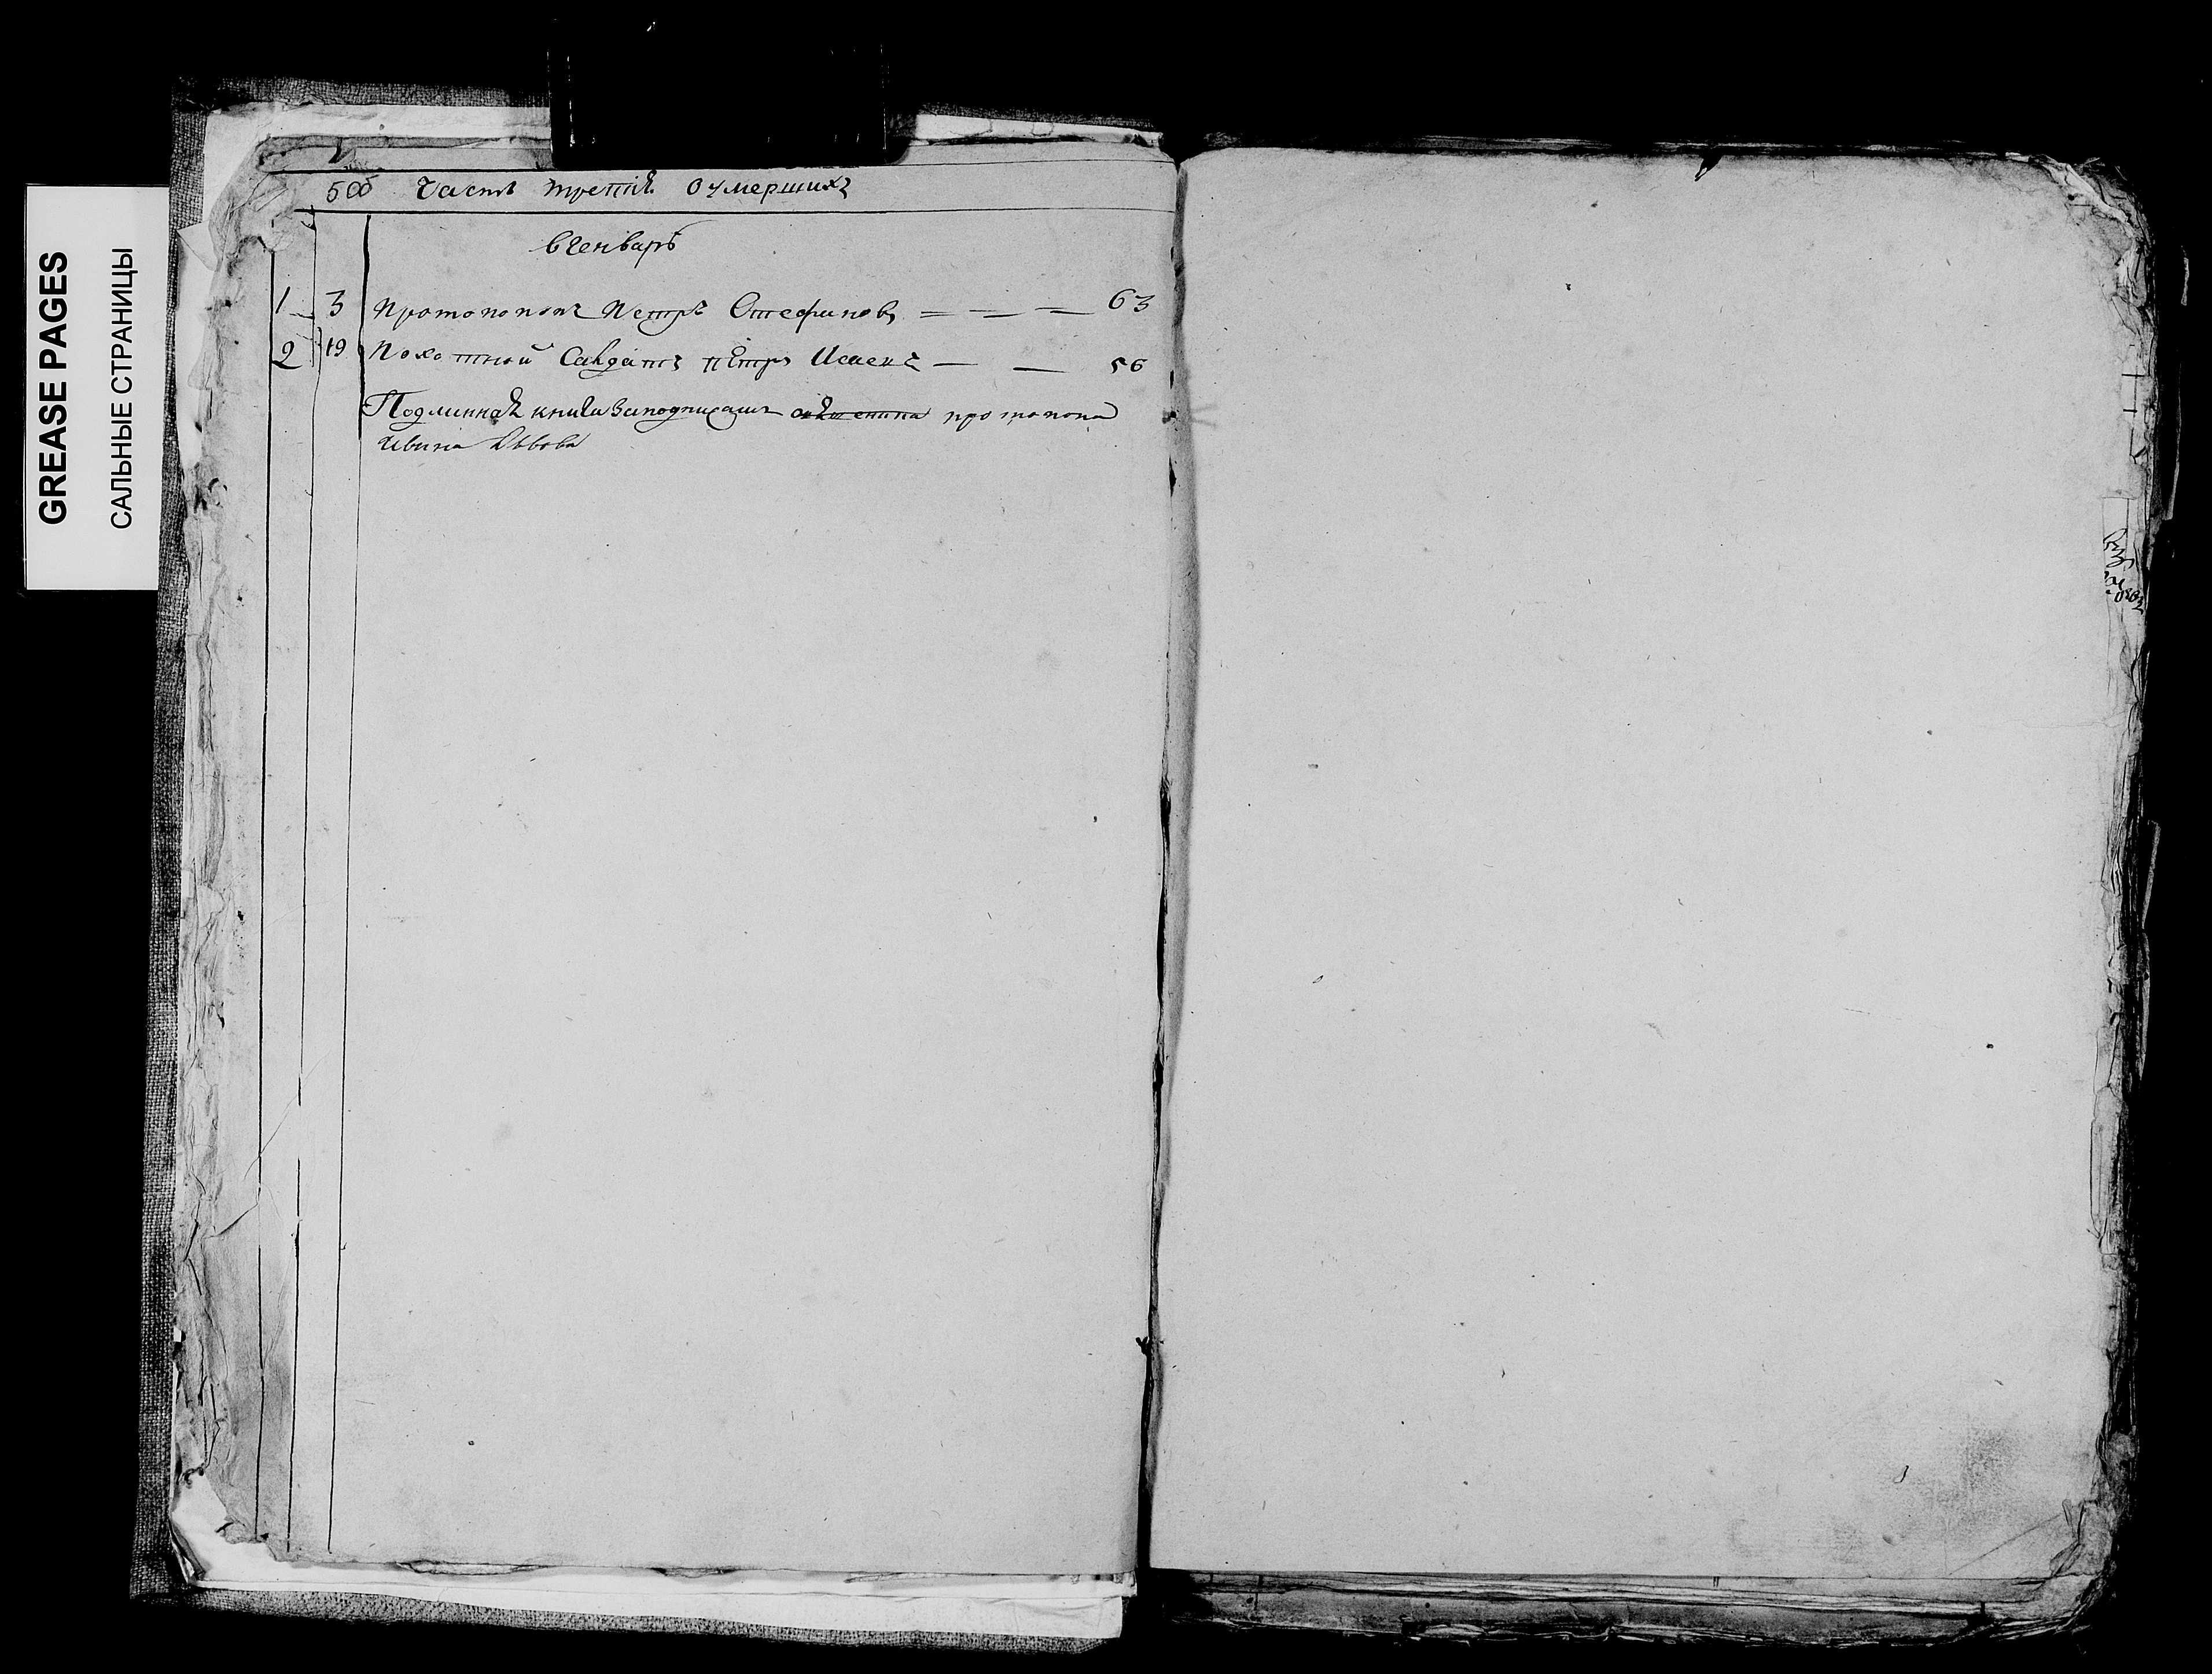 GREASE PAGES
САЛЬНЫЕ СТРАНИЦЫ
Часть третия О умерших
вГенваре
1 3 Протопопъ Петръ Стефановъ 63
2 19 Пехотной Салдатъ пЕтръ Исаевъ 56
Подлинная книга Заподписаниемъ протопопа
Ивана Львова